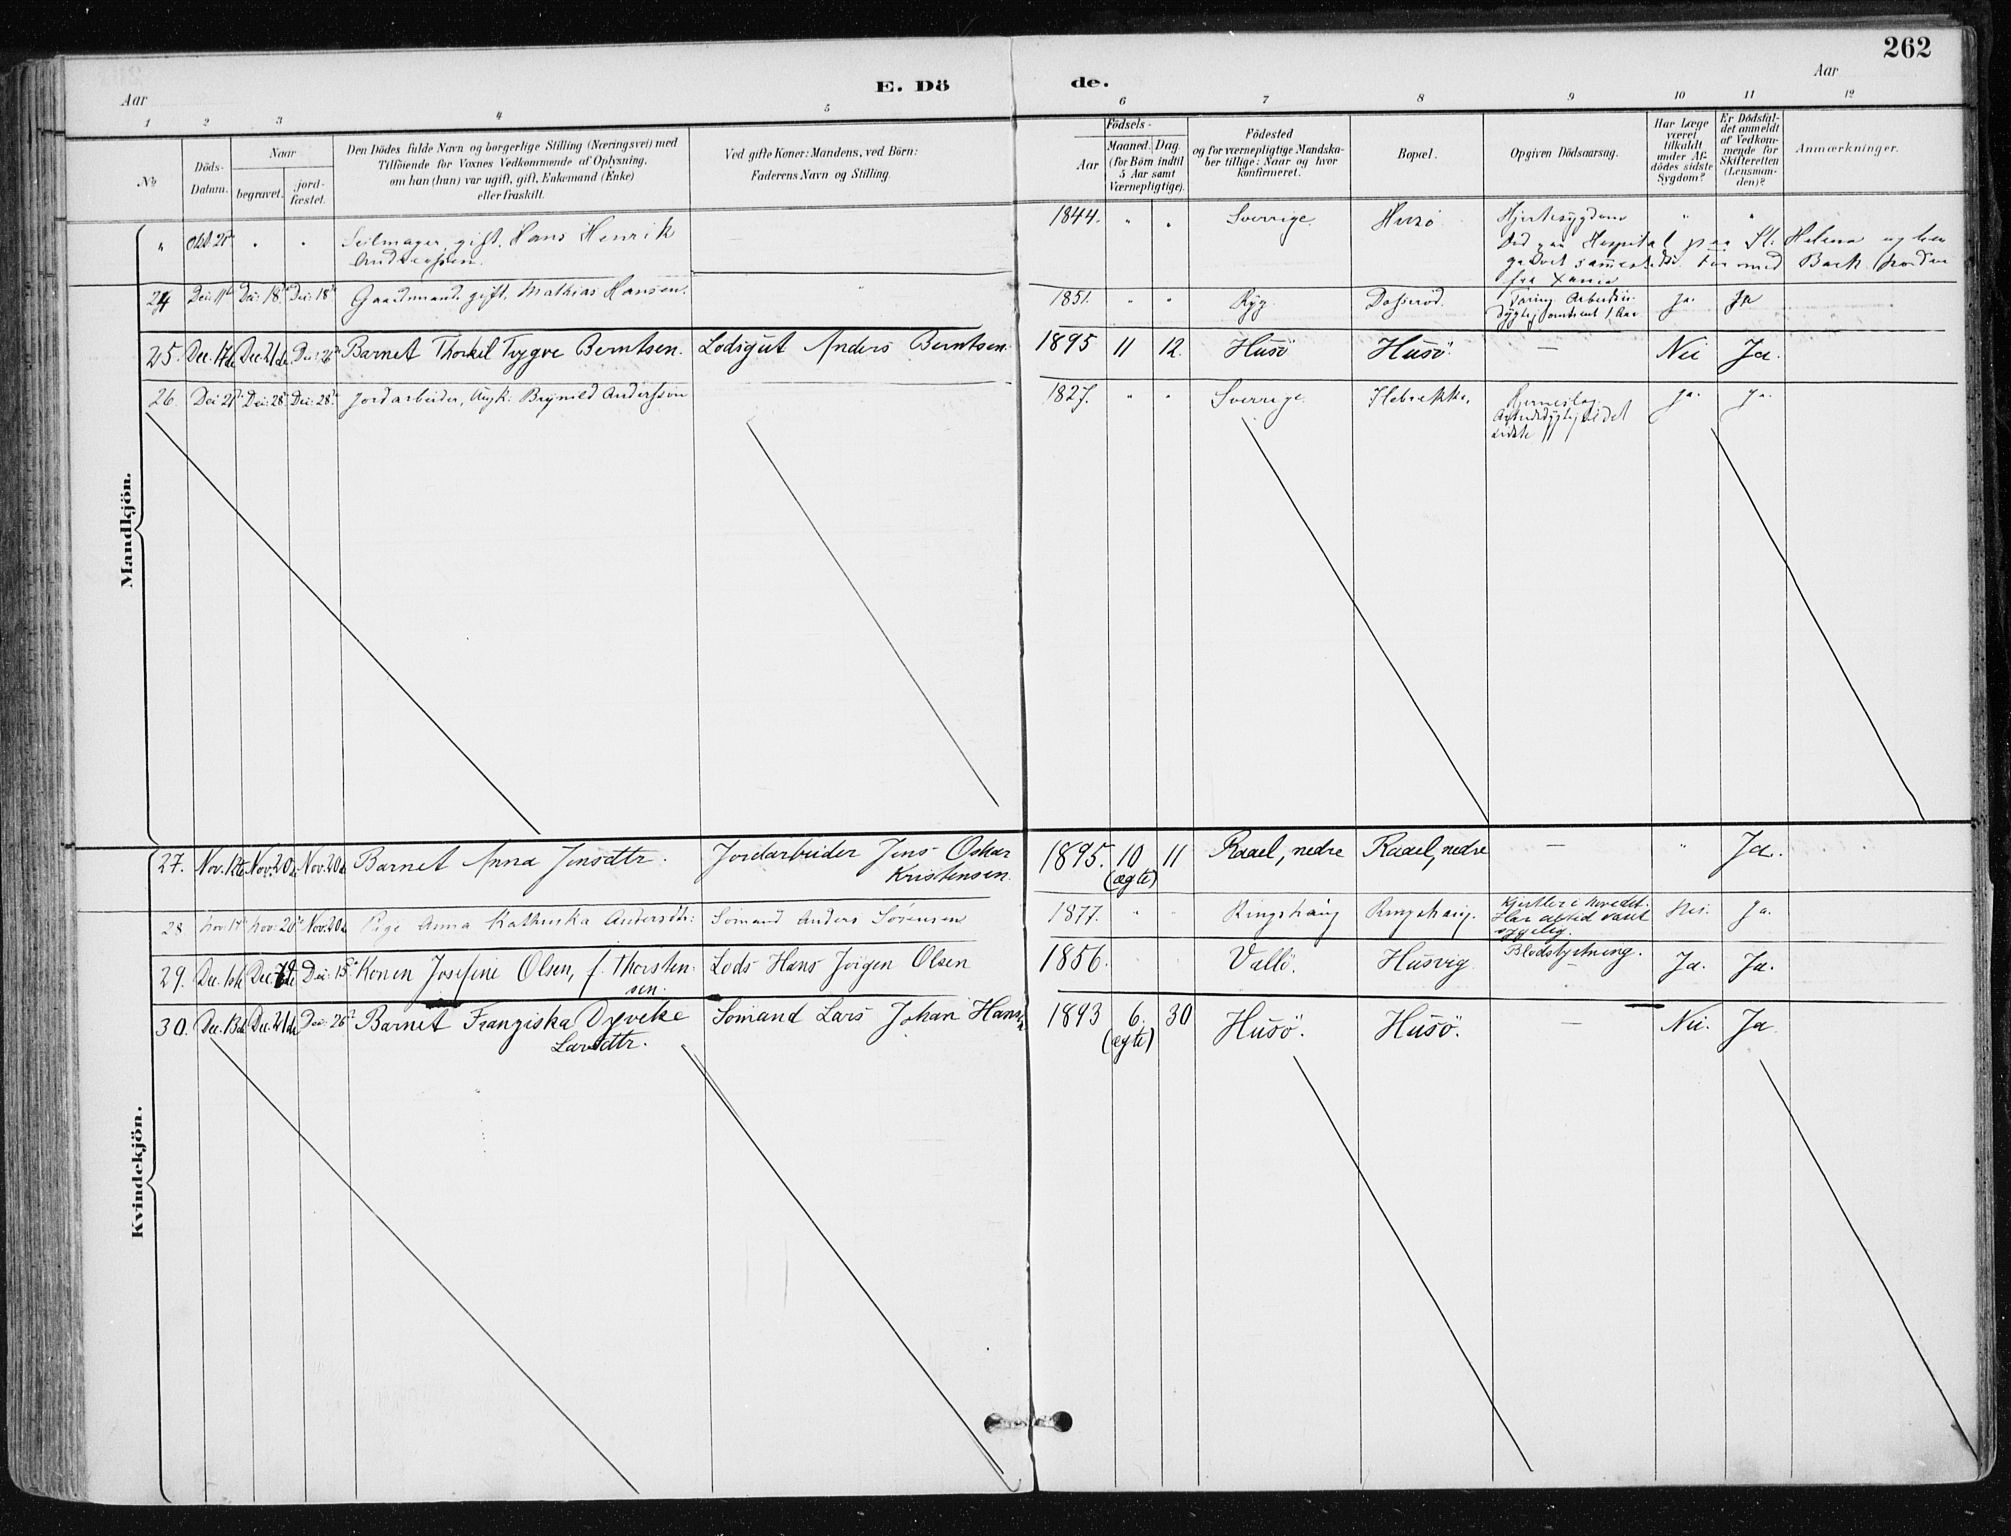 262
Aar
E. Döde.
Aar
1 2 3 4 5 6 7 8 9 10 11 12
No
Döds-
Datum.
Naar
begravet.
jord-
fæstet.
Den Dödes fulde Navn og borgerlige Stilling (Næringsvei) med
Tilföiende for Voxnes Vedkommende af Oplysning,
om han (hun) var ugift, gift, Enkemand (Enke)
eller fraskilt.
Ved gifte Koner: Mandens, ved Börn:
Faderens Navn og Stilling.
Födsels-
Aar
Maaned. Dag
(for Börn indtil
5 Aar samt
Værnepligtige).
Födested
og for værnepligtige Mandska-
ber tillige: Naar og hvor
konfirmeret.
Bopæl.
Opgiven Dödsaarsag.
Har Læge
været
tilkaldt
under Af-
dödes sidste
Sygdom?
Er Dödsfal-
det anmeldt
af Vedkom-
mende for
Skifteretten
(Lensman-
den)?
Anmærkninger.
Mandkjön.
" Okt. " " Seilmager, gift. Hans Henrik
1844. " " Sverrige. Husö Hjertesygdom " "
Död paa Hospital paa St. Helena og
fra
24 Dec. 11 Dec. 18 Dec. 18 Gaardmand, gift, Mathias Hansen. 1851. " " Ryg. Tæring. Ja. Ja
25. Dec. 17de Dec. 21de Dec. 26 Barnet Thorkel Trygve Berntsen. Lodsgut Anders Berntsen. 1895 11 12. Husö Husö. — Nei Ja.
26. Dec. 21 Dec. 28 Dec. 28 Jordarbeider, Brynild Anderssön 1827. " " Sverrige. Ja. Ja.
det
sidste
Kvindekjön.
27. Nov. Nov. 20 Nov. 20 Barnet Anna Jensdtr. Jordarbeider Jens Oskar
Kristensen. 1895. 10 11 Raael, nedre Raael, nedre — " Ja.
(ægte)
28 Nov. 17 Nov. 20 Nov. 20 Pige Anna Kathinka Andersdtr: Sömand Anders Sörensen 1877. " " Ringshaug Ringshaug. Kjertler i hovedet.
Har altid været
sygelig. Nei. Ja.
29. Dec. Dec. Dec. 15 Konen Josefine Olsen, f. Thorsten-
sen. Lods Hans Jörgen Olsen 1856. Vallö. Husvig Blodstyrtning. Ja. Ja.
30. Dec. 13de Dec. 21de Dec. 26 Barnet Franziska Dyveke
Larsdtr. Sömand Lars Johan Hans. 1893 6. 30 Husö. Husö. — Nei. Ja
(ægte)